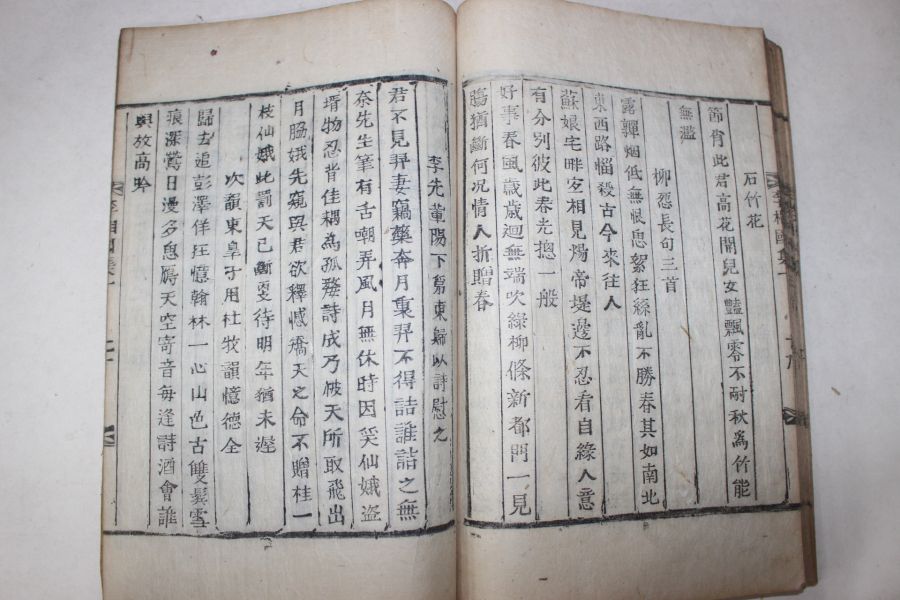 石竹花
節肖此君高花開兒女豔飄零不耐秋爲竹能
無濫
柳怨長句三首
露嚲烟低無恨思絮狂絲亂不勝春其如南北
東西路惱殺古今來往人
蘇娘宅畔空相見煬帝堤邊不忍看自緣人意
有分別彼此春光摠一般
好事春風歲歲迴無端吹綠柳條新都門一見
腸猶斷何况情人折贈春
李先輩陽下第東歸以詩慰之
君不見羿妻竊藥奔月裏羿不得詰誰詰之無
奈先生筆有舌嘲弄風月無休時因笑仙娥盜
壻物忍背佳耦爲孤嫠詩成乃被天所取飛出
月脇娥先窺與君欲釋憾矯天之命不贈桂一
枝仙娥此罰天已斷更待明年猶未遲
次韻東皐子用杜牧韻憶德全
歸去追彭澤佯狂憶翰林一心山色古雙鬂雪
痕深鶯日漫多息鴈天空寄音每逢詩酒會誰
與放高吟